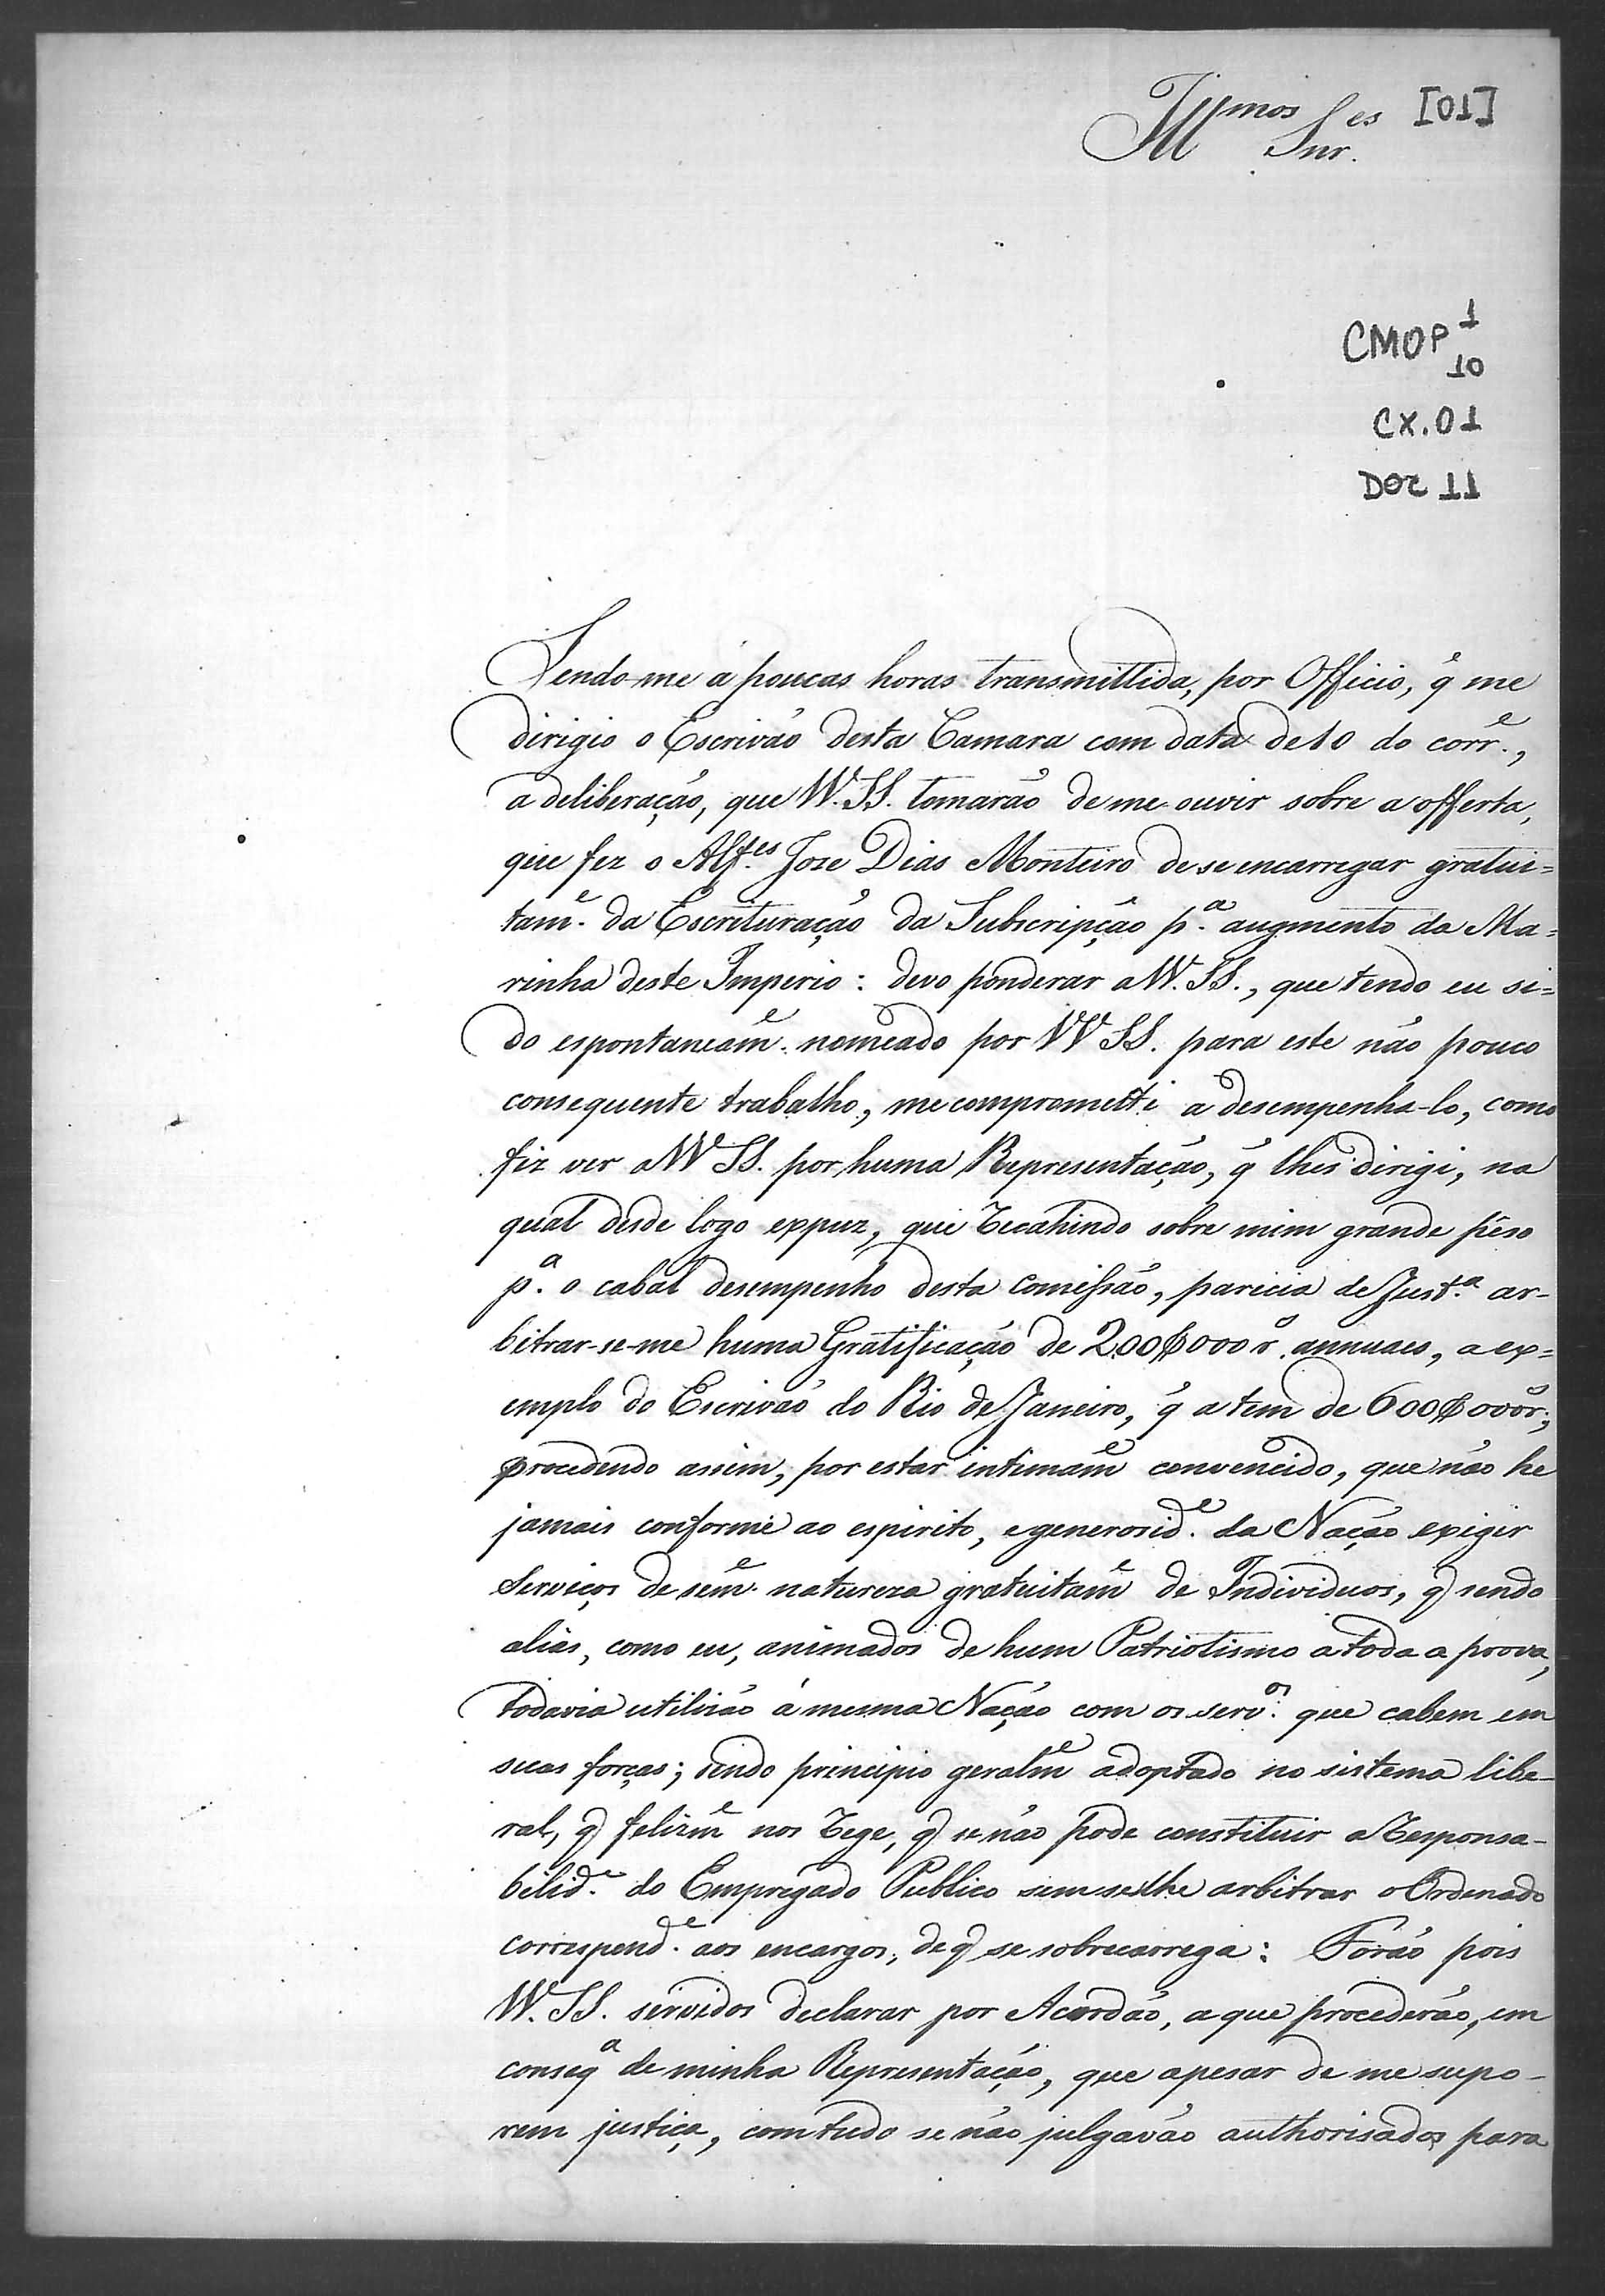 Illmos Snres [01]
CMOP 1
10
CX.01
DOC 11
Sendo-me á poucas horas transmittida, por Officio, q̃ me
dirigio o Escrivão desta Camara com data de 10 do corr.e,
a deliberação, que VV. SS. tomarão de me ouvir sobre a offerta,
que fez o Alf.es Joze Dias Monteiro de se encarregar gratui=
tam.e da Escrituração da Subscripção p.a augmento da Ma=
rinha deste Imperio: devo ponderar a VV. SS., que tendo eu si=
do espontaneam.e nomeado por VV SS. para este não pouco
consequente trabalho, me comprometti a desempenha-lo, como
fiz ver a VV SS. por huma Representação, q̃ lhes dirigi, na
qual desde logo expuz, que recahindo sobre mim grande pêso
p.a o cabal desempenho desta Comissão, parecia de Just.a ar-
bitrar-se-me huma Gratificação de 200$000 r. annuaes, a ex=
emplo do Escrivão do Rio de Janeiro, q̃ a tem de 600$000r.;
procedendo assim, por estar intimam.e convencido, que não he
jamais conforme ao espirito, e generosid.e da Nação exigir
Serviços de sem.e natureza gratuitam.e de Individuos, q̃ sendo
aliás, como eu, animados de hum Patriotismo a toda a prova,
todavia utilizão á mesma Nação com os serv.os que cabem em
suas forças; sendo principio geralm.e adoptado no sistema libe-
ral, q̃ felizm.e nos rege, q̃ se não pode constituir a responsa-
bilid.e do Empregado Publico sem se lhe arbitrar o Ordenado
correspond.e aos encargos, de q̃ se sobrecarrega: Forão pois
VV. SS. servidos declarar por Acordão, a que procederão, em
conseq.a de minha Representação, que apesar de me supo-
rem justiça, comtudo se não julgavão authorisados para